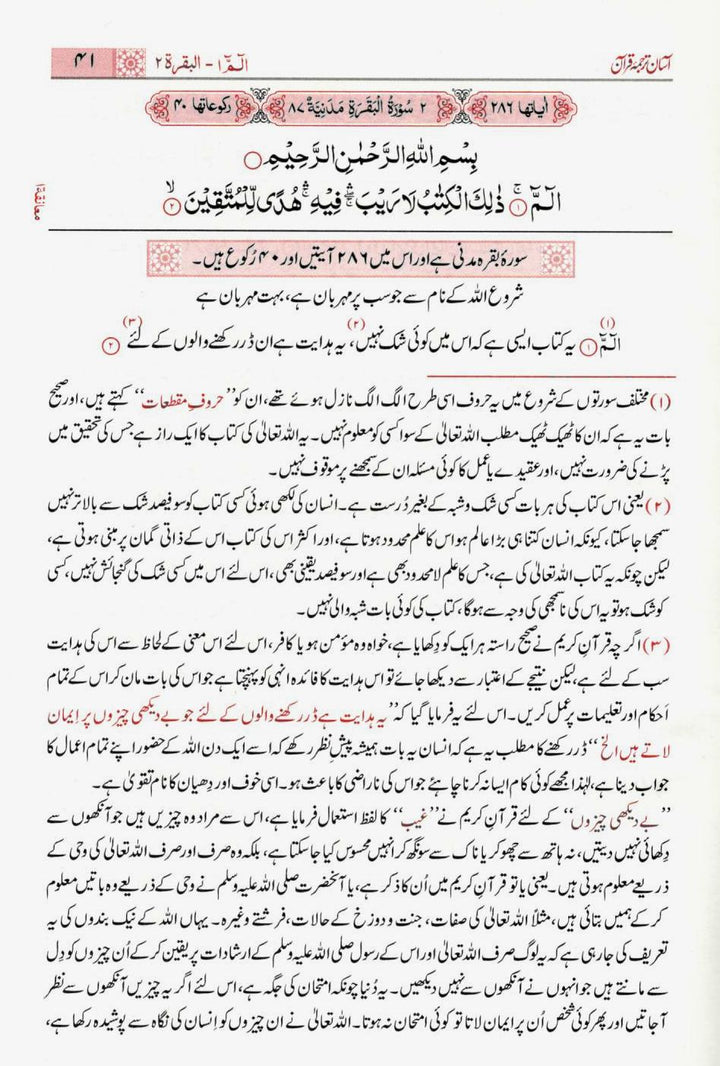 آسان ترجمۂ قرآن
الٓمّٓ ۱ - البقرة ۲
۴۱
اٰیاتها ۲۸۶
۲ سُوْرَةُ الْبَقَرَةِ مَدَنِيَّةٌ ۸۷
رکوعاتها ۴۰
بِسْمِ اللهِ الرَّحْمٰنِ الرَّحِيْمِ
الٓمّٓ ۚ ۱ ذٰلِكَ الْكِتٰبُ لَا رَيْبَ ۛۖ فِيْهِ ۛۚ هُدًى لِّلْمُتَّقِيْنَ ۙ ۲
معانقة ۱
سورۂ بقرہ مدنی ہے اور اس میں ۲۸۶ آیتیں اور ۴۰ رُکوع ہیں۔
شروع اللہ کے نام سے جو سب پر مہربان ہے، بہت مہربان ہے
الٓمّٓ (۱) ۱ یہ کتاب ایسی ہے کہ اس میں کوئی شک نہیں، (۲) یہ ہدایت ہے ان ڈر رکھنے والوں کے لئے (۳) ۲
(۱) مختلف سورتوں کے شروع میں یہ حروف اسی طرح الگ الگ نازل ہوئے تھے، ان کو ”حروفِ مقطعات“ کہتے ہیں، اور صحیح
بات یہ ہے کہ ان کا ٹھیک ٹھیک مطلب اللہ تعالیٰ کے سوا کسی کو معلوم نہیں۔ یہ اللہ تعالیٰ کی کتاب کا ایک راز ہے جس کی تحقیق میں
پڑنے کی ضرورت نہیں، اور عقیدے یا عمل کا کوئی مسئلہ ان کے سمجھنے پر موقوف نہیں۔
(۲) یعنی اس کتاب کی ہر بات کسی شک و شبہ کے بغیر دُرست ہے۔ انسان کی لکھی ہوئی کسی کتاب کو سو فیصد شک سے بالاتر نہیں
سمجھا جا سکتا، کیونکہ انسان کتنا ہی بڑا عالم ہو اس کا علم محدود ہوتا ہے، اور اکثر اس کی کتاب اس کے ذاتی گمان پر مبنی ہوتی ہے،
لیکن چونکہ یہ کتاب اللہ تعالیٰ کی ہے، جس کا علم لامحدود بھی ہے اور سو فیصد یقینی بھی، اس لئے اس میں کسی شک کی گنجائش نہیں، کسی
کو شک ہو تو یہ اس کی ناسمجھی کی وجہ سے ہوگا، کتاب کی کوئی بات شبہ والی نہیں۔
(۳) اگرچہ قرآنِ کریم نے صحیح راستہ ہر ایک کو دِکھایا ہے، خواہ وہ مؤمن ہو یا کافر، اس لئے اس معنی کے لحاظ سے اس کی ہدایت
سب کے لئے ہے، لیکن نتیجے کے اعتبار سے دیکھا جائے تو اس ہدایت کا فائدہ انہی کو پہنچتا ہے جو اس کی بات مان کر اس کے تمام
اَحکام اور تعلیمات پر عمل کریں۔ اس لئے یہ فرمایا گیا کہ ”یہ ہدایت ہے ڈر رکھنے والوں کے لئے جو بے دیکھی چیزوں پر اِیمان
لاتے ہیں الخ“ ڈر رکھنے کا مطلب یہ ہے کہ انسان یہ بات ہمیشہ پیشِ نظر رکھے کہ اسے ایک دن اللہ کے حضور اپنے تمام اعمال کا
جواب دینا ہے، لہٰذا مجھے کوئی کام ایسا نہ کرنا چاہئے جو اس کی ناراضی کا باعث ہو۔ اسی خوف اور دِھیان کا نام تقویٰ ہے۔
”بے دیکھی چیزوں“ کے لئے قرآنِ کریم نے ”غیب“ کا لفظ استعمال فرمایا ہے، اس سے مراد وہ چیزیں ہیں جو آنکھوں سے
دِکھائی نہیں دیتیں، نہ ہاتھ سے چھو کر یا ناک سے سونگھ کر انہیں محسوس کیا جا سکتا ہے، بلکہ وہ صرف اور صرف اللہ تعالیٰ کی وحی کے
ذریعے معلوم ہوتی ہیں۔ یعنی یا تو قرآنِ کریم میں اُن کا ذکر ہے، یا آنحضرت صلی اللہ علیہ وسلم نے وحی کے ذریعے وہ باتیں معلوم
کر کے ہمیں بتائی ہیں، مثلاً اللہ تعالیٰ کی صفات، جنت و دوزخ کے حالات، فرشتے وغیرہ۔ یہاں اللہ کے نیک بندوں کی یہ
تعریف کی جا رہی ہے کہ یہ لوگ صرف اللہ تعالیٰ اور اس کے رسول صلی اللہ علیہ وسلم کے ارشادات پر یقین کر کے اُن چیزوں کو دِل
سے مانتے ہیں جو انہوں نے آنکھوں سے نہیں دیکھیں۔ یہ دُنیا چونکہ امتحان کی جگہ ہے، اس لئے اگر یہ چیزیں آنکھوں سے نظر
آجاتیں اور پھر کوئی شخص اُن پر ایمان لاتا تو کوئی امتحان نہ ہوتا۔ اللہ تعالیٰ نے ان چیزوں کو اِنسان کی نگاہ سے پوشیدہ رکھا ہے،